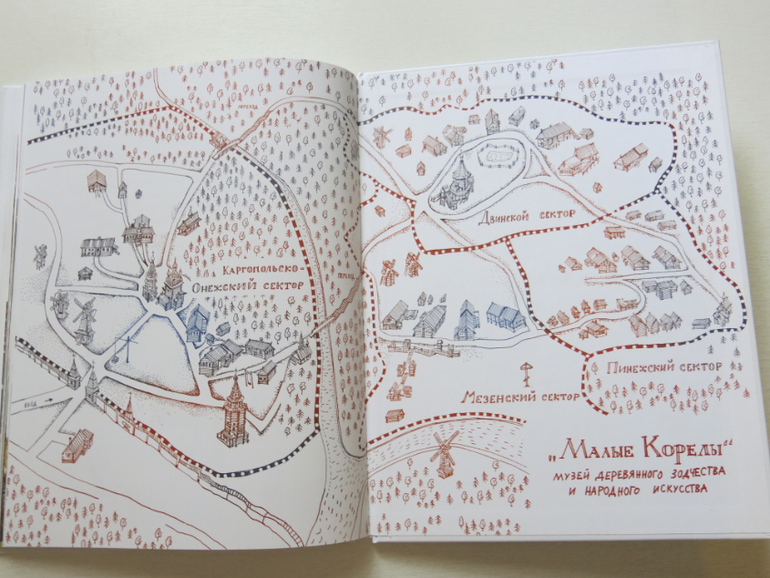 переход
Каргопольско-
Онежский сектор
переход
вход
Двинской сектор
Пинежский сектор
Мезенский сектор
„Малые Корелы“
музей деревянного зодчества
и народного искусства